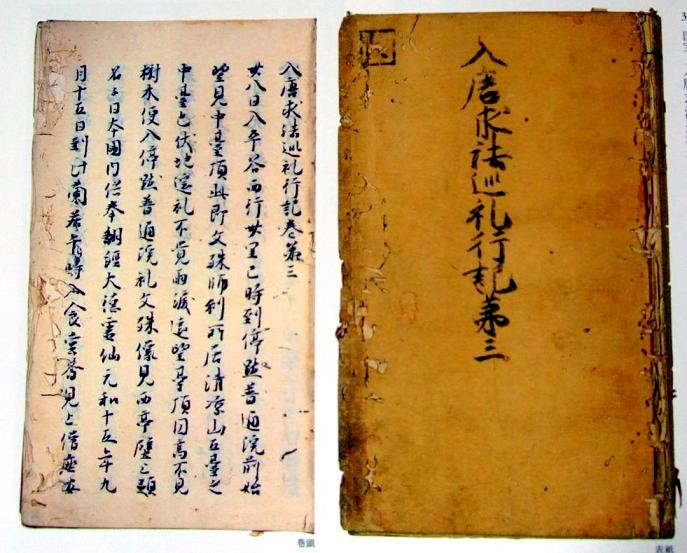 入唐求法巡礼行記第三
入唐求法巡礼行記巻第三
廿八日入平谷西行卅里巳時到停點普通院前始
望見中臺頂此即文殊師利所居清凉山五臺之
中臺也伏地遥礼不覺雨涙遥望臺頂円高不見
樹木便入停點普通院礼文殊像見西亭壁上題
日本國内供奉翻經大德霊仙元和十五年九
月十五日到此蘭若 時入食堂 見上僧座安
巻頭
表紙